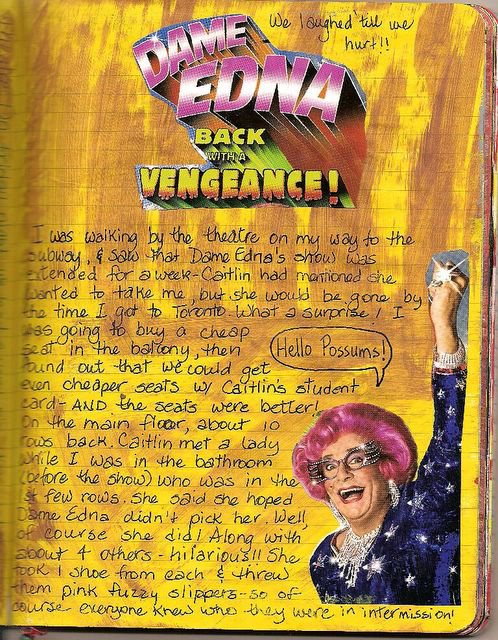 We laughed 'till we
hurt!!
DAME
EDNA
BACK
WITH A
VENGEANCE!
I was walking by the theatre on my way to the
subway, & saw that Dame Edna's show was
extended for a week - Caitlin had mentioned she
wanted to take me, but she would be gone by
the time I got to Toronto. What a surprise! I
was going to buy a cheap
seat in the balcony, then
found out that we could get
even cheaper seats w/ Caitlin's student
card - AND the seats were better!
On the main floor, about 10
rows back. Caitlin met a lady
while I was in the bathroom
(before the show) who was in the
1st few rows. She said she hoped
Dame Edna didn't pick her. Well,
of course she did! Along with
about 4 others - hilarious!! She
took 1 shoe from each & threw
them pink fuzzy slippers - so of
course everyone knew who they were in intermission!
Hello Possums!